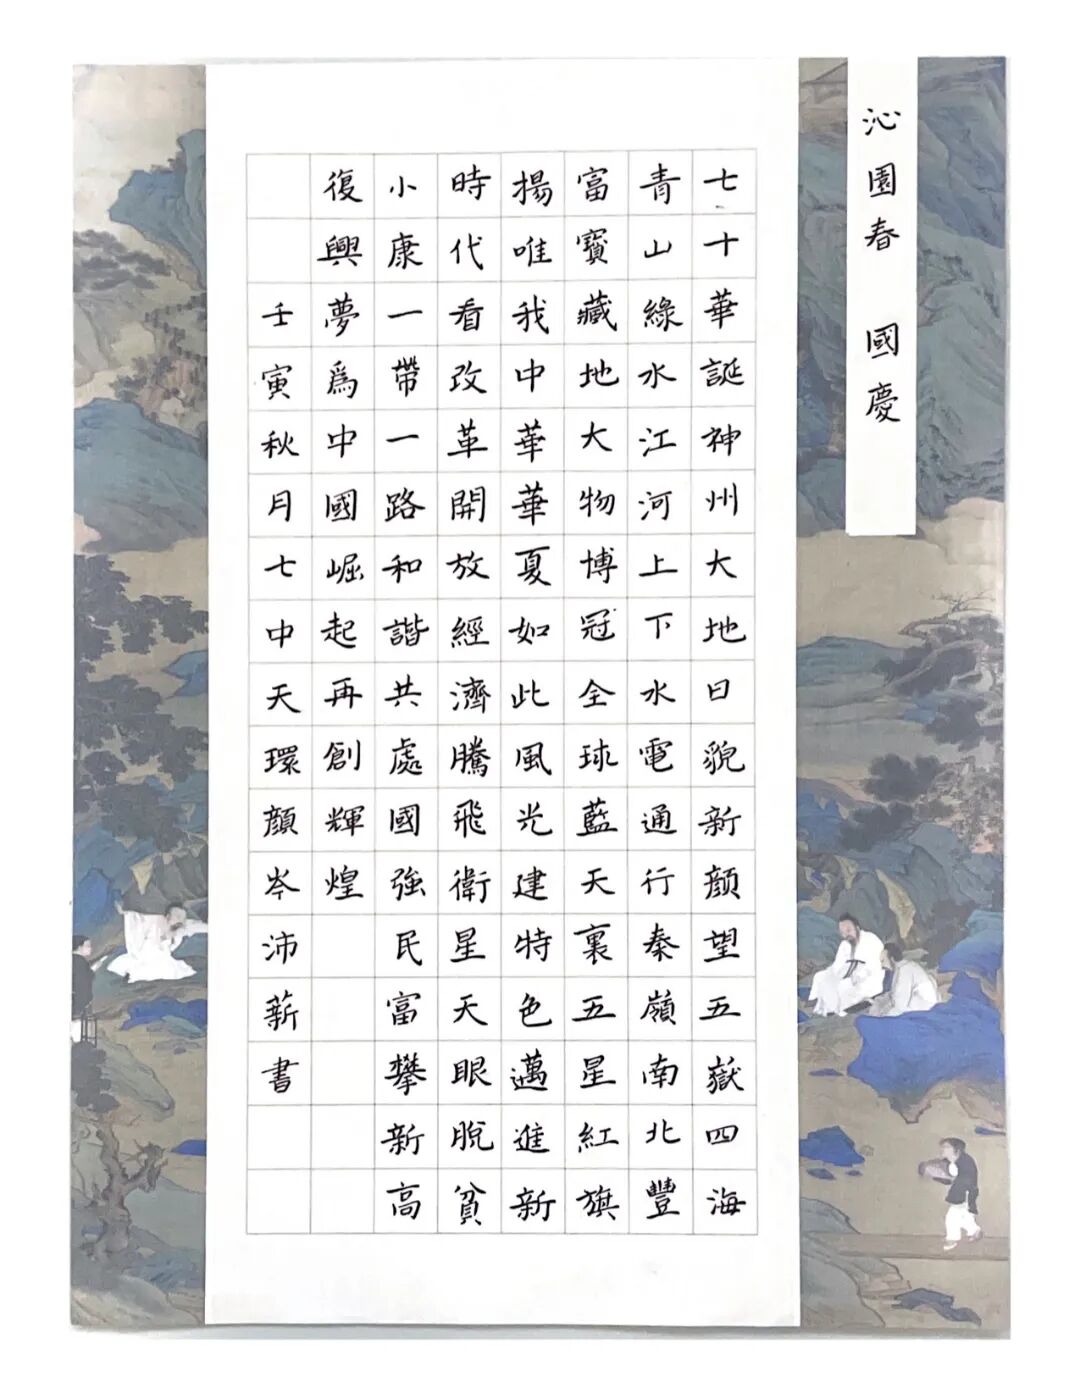 沁園春 國慶
七十華誕神州大地日貌新顔望五嶽四海
青山綠水江河上下水電通行秦嶺南北豐
富寶藏地大物博冠全球藍天裏五星紅旗
揚唯我中華華夏如此風光建特色邁進新
時代看改革開放經濟騰飛衛星天眼脫貧
小康一帶一路和諧共處國強民富攀新高
復興夢爲中國崛起再創輝煌
壬寅秋月七中天環顔岑沛薪書